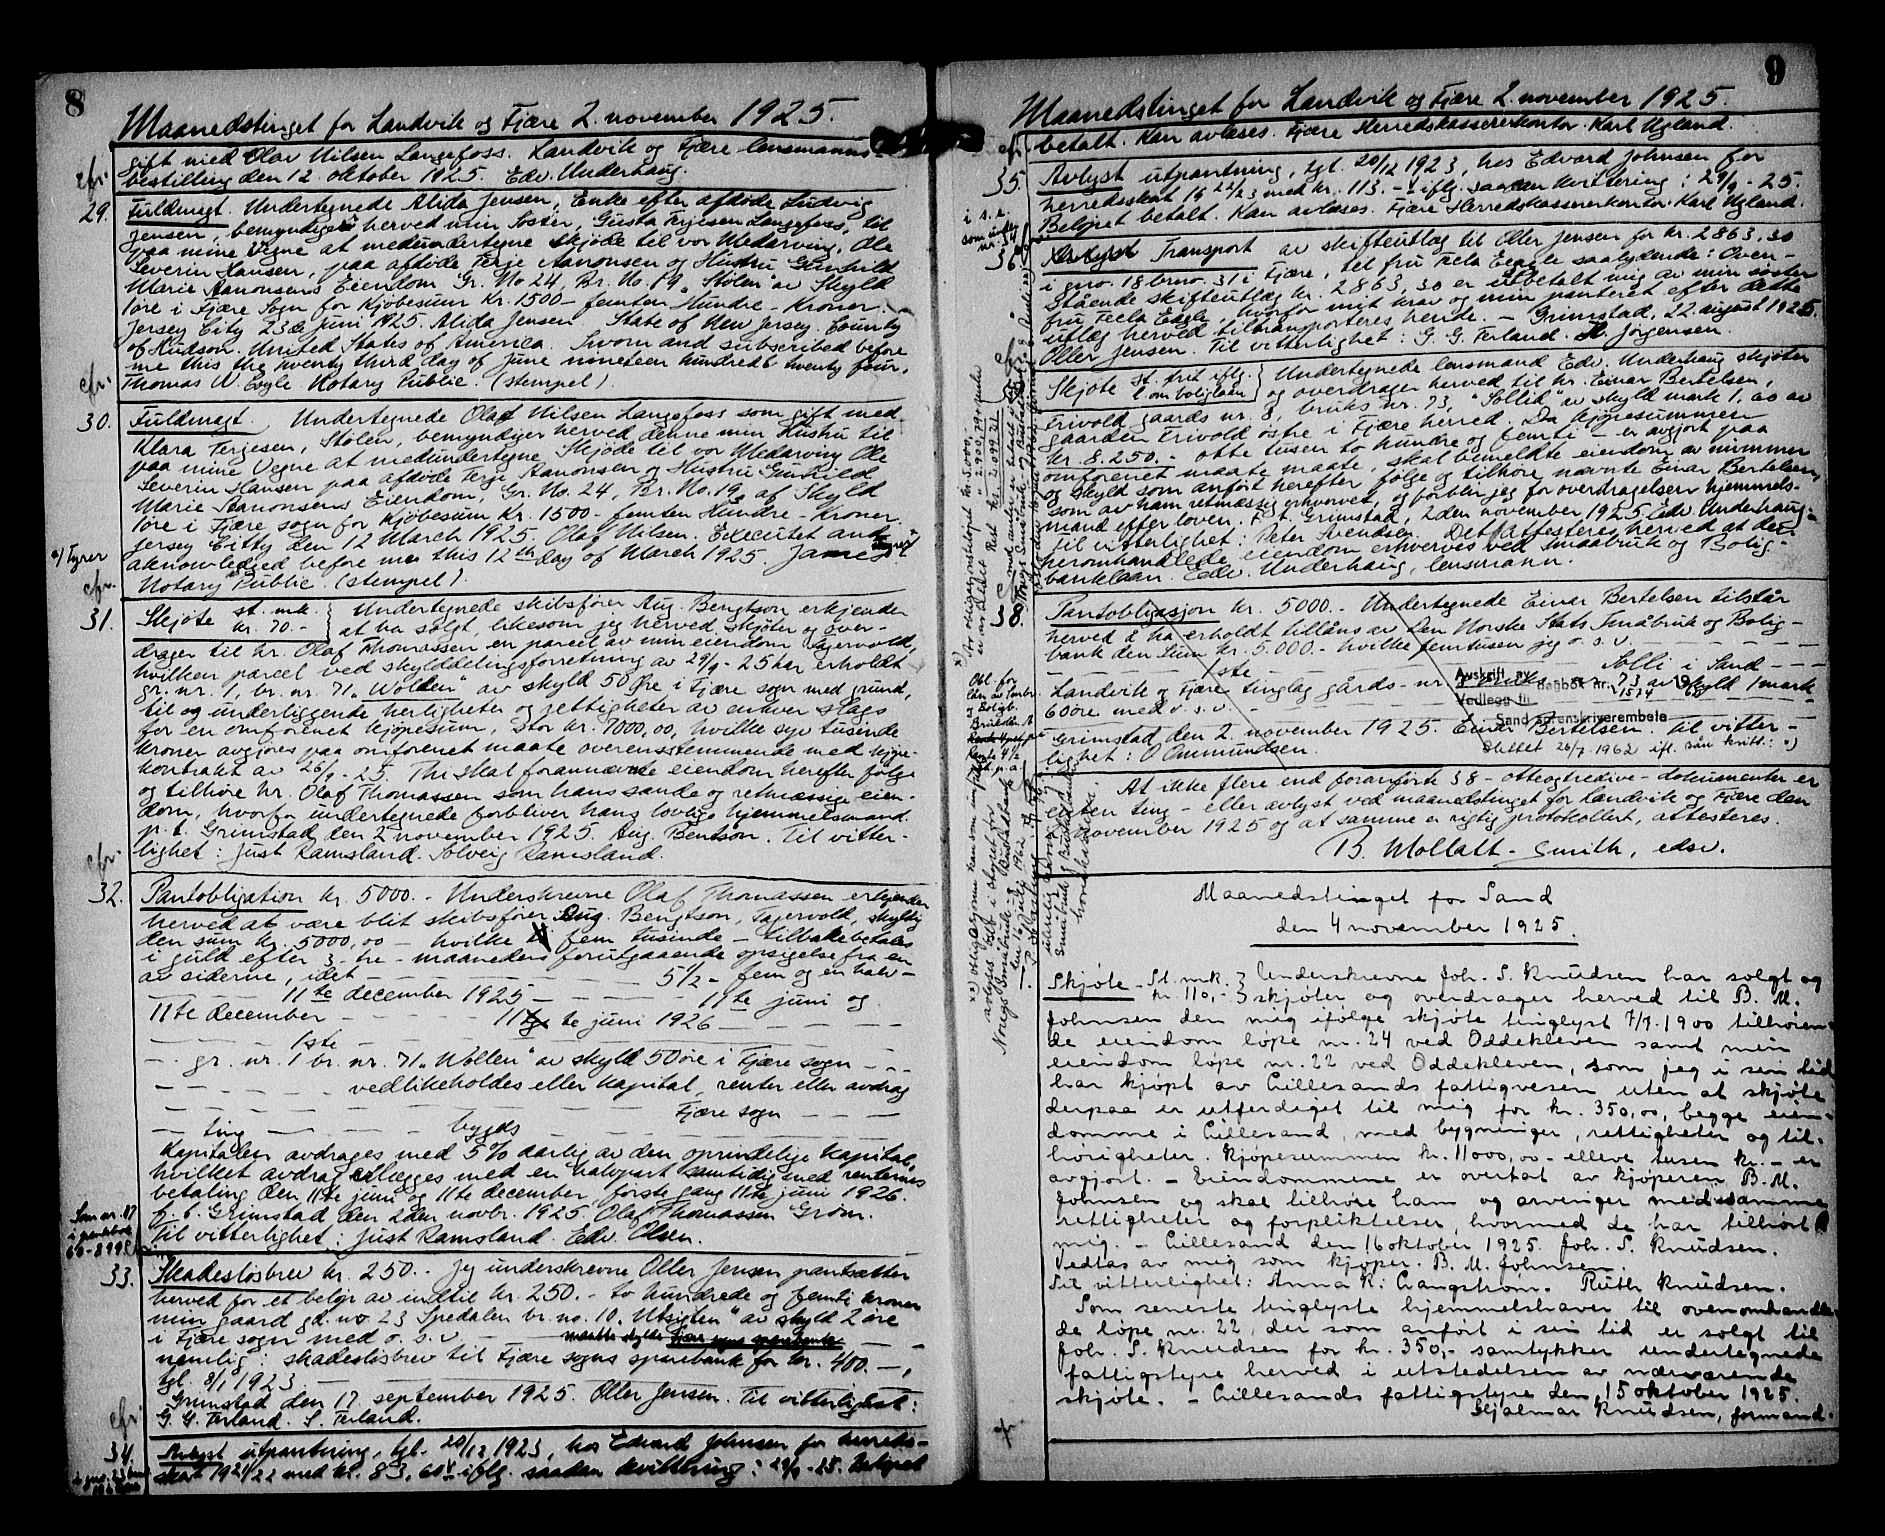 8
Maanedstinget for Landvik og Fjære 2. november 1925.
gift med Olav Nilsen Langefoss. Landvik og Fjære lensmanns-
bestilling den 12 oktober 1925. Edv. Underhaug.
cfr.
29. Fuldmagt. Undertegnede Alida Jensen, Enke efter afdöde Ludvig
Jensen, bemyndiger herved min Söster, Gusta Terjesen Langefoss, til
paa mine Vegne at medundertegne skjöde til vor Medarving, Ole
Severin Hansen, paa afdöde Terje Aanonsen og Hustru Gunhild
Marie Aanonsens Eiendom Gr. No 24, Br. No. 19 "Stölen" av Skyld
1öre i Fjære Sogn for Kjöbesum Kr. 1500 - femten Hundre - Kroner.
Jersey City 23de Juni 1925. Alida Jensen State of New Jersey. County
of Hudson. United States of America. Sworn and subscribed before
me this the twenty third day of June nineteen hundred & twenty four,
Thomas W. Engle Notary Public. (stempel).
cfr.
30. Fuldmagt. Undertegnede Olaf Nilsen Langefoss som gift med
Klara Terjesen, Stölen, bemyndiger herved denne min Hustru til
paa mine Vegne at medundertegne Skjöde til vor Medarving Ole
Severin Hansen paa afdöde Terje Aanonsen og Hustru Gunhild
Marie Aanonsens Eiendom, Gr. No. 24, Br. No. 19 af Skyld
1öre i Fjære sogn for Kjöbesum Kr. 1500 - femten Hundre - Kroner.
Jersey Citty den 12 March 1925. Olaf Nilsen. Executet and
aknowledged before me this 12th day of March 1925. James
x) Tyrer
Notary Public. (stempel).
cfr.
31. Skjöte st. mk. kr. 70.- } Undertegnede skibsförer Aug. Bengtson erkjender
at ha solgt, likesom jeg herved skjöter og over-
drager til hr. Olaf Thomassen en parcel av min eiendom Vagervold,
hvilken parcel ved skylddelingsforretning av 29/9 - 25 har erholdt
gr. nr. 1, br. nr. 71 "Wollen" av skyld 50 Öre i Fjære sogn med grund,
til og underliggende herligheter og rettigheter av enhver slags
for en omforenet kjöpesum, stor kr. 7000,00, hvilke syv tusende
kroner avgjöres paa omforenet maate overensstemmende med kjöpe-
kontrakt av 26/9 - 25. Thi skal forannævnte eiendom herefter fölge
og tilhöre hr. Olaf Thomassen som hans sande og retmæssige eien-
dom, hvorfor undertegnede forbliver hans lovlige hjemmelsmand.
p. t. Grimstad den 2 november 1925. Aug. Bentson. Til vitter-
lighet: Just Ramsland. Solveig Ramsland.
cfr.
32. Pantobligation kr. 5000.- Underskrevne Olaf Thomassen erkjender
herved at være blit skibsförer Aug. Bengtson, Vagervold, skyldig
den sum kr. 5000,00 - hvilke fem tusinde - tilbakebetales
i guld efter 3 - tre - maaneders forutgaaende opsigelse fra en
av siderne, idet - - - 5 1/2 - fem og en halv -
- - - 11te december 1925 - - - - 11te juni og
11te december - - - - 11te juni 1926 - - -
1ste
- - gr. nr. 1 br. nr. 71 "Wollen" av skyld 50 öre i Fjære sogn - - -
- - - - vedlikeholdes eller kapital, renter eller avdrag
- - - - - - Fjære sogn - - -
- ting - - - bygds - - -
Kapitalen avdrages med 5% aarlig av den oprindelige kapital,
hvilket avdrag erlægges med en halvpart samtidig med renternes
betaling den 11te juni og 11te december, förste gang 11te juni 1926.
p. t. Grimstad den 2den novbr. 1925. Olaf Thomassen Gröm.
Til vitterlighet: Just Ramsland. Edv. Olsen.
33. Skadeslösbrev kr. 250.- Jeg underskrevne Oller Jensen pantsætter
herved for et belöp av indtil kr. 250.- to hundrede og femti kroner
min gaard gd. no 23 Spedalen br. no. 10. "Utsigten" av skyld 2 öre
i Fjære sogn med o. s. v - - -
nemlig: skadeslösbrev til Fjære sogns sparebank for kr. 400.-,
tgl. 8/1 1923 -
Grimstad den 17 september 1925. Oller Jensen. Til vitterlighet:
G. G. Terland. S. Terland.
cfr.
34. Avlyst utpantning, tgl. 20/12 1923, hos Edvard Johnsen for herreds-
skat 1921/22 med kr. 83,60 iflg. saadan kvittering: 29/9 - 25. Belöpet
9
Maanedstinget for Landvik og Fjære 2. november 1925.
betalt. Kan avlæses. Fjære Herredskassererkontor. Karl Ugland.
cfr.
35. Avlyst utpantning, tgl. 20/12 1923, hos Edvard Johnsen for
herredsskat 19 22/23 med kr. 113.- iflg. saadan kvittering: 29/9 - 25.
Belöpet betalt. Kan avlæses. Fjære Herredskassererkontor. Karl Ugland.
36. Transport av skifteutlæg til Oller Jensen for kr. 2863,30
i gno. 18 brno. 31 i Fjære, til fru Tecla Eagle saalydende: Oven-
stående skifteutlæg kr. 2863,30 er utbetalt mig av min söster
fru Tecla Eagle, hvorfor mit krav og min panteret efter dette
utlæg herved tiltransporteres hende. - Grimstad, 22. august 1925.
Oller Jensen. Til vitterlighet: G. G. Terland. Jörgensen.
Skjöte st. frit iflg. l. om boliglaan } Undertegnede lensmand Edv. Underhaug skjöter
og overdrager herved til hr. Einar Bertelsen,
Frivold gaards nr. 8, bruks nr. 73, "Sollid" av skyld mark 1,60 av
gaarden Frivold östre i Fjære herred. Da kjöpesummen
kr. 8.250.- otte tusen to hundre og femti - er avgjort paa
omforenet maate, skal bemeldte eiendom av nummer
og skyld som anfört herefter fölge og tilhöre nævnte Einar Bertelsen,
som av ham retmæssig erhvervet, og forblir jeg for overdragelsen hjemmels-
mand efter loven. P. t. Grimstad, 2den november 1925. Edv. Underhaug.
Til vitterlighet: Peter Svendsen. Det attesteres herved at den
heromhandlede eiendom erhverves ved Smaabruk og Bolig-
banklaan. Edv. Underhaug, lensmann.
38. Pantobligasjon kr. 5000.- Undertegnede Einar Bertelsen tilstår
herved å ha erholdt tillåns av Den Norske Stats Småbruk og Bolig-
bank den Sum kr. 5.000.- hvilke femtusen jeg o. s. v. - - -
- - - 1ste - - - Solli i Sand - - -
Landvik og Fjære tinglag gårds- nr. 73 av skyld 1 mark
60 öre med o. s. v. - - -
Grimstad den 2. november 1925. Einar Bertelsen. Til vitter-
lighet: O Ommundsen.
Avskrift av
dagbok nr. 1524
Vedlegg til
Sand sorenskriverembete
Slettet 26/7 1962 ifl. sån kvitt.: x)
At ikke flere end foranförte 38 - otteogtredive - dokumenter er
blevne ting - eller avlyst ved maanedstinget for Landvik og Fjære den
2 november 1925 og at samme er rigtig protokollert, attesteres.
B. Mollatt-Smith, edsv.
Maanedstinget for Sand
den 4 november 1925.
Skjöte - St. mk. kr. 110,- } Underskrevne Joh. S. Knudsen har solgt og
skjöter og overdrager herved til B. M.
Johnsen den mig ifölge skjöte tinglyst 7/7. 1900 tilhören-
de eiendom löpe nr. 24 ved Oddekleven samt min
eiendom löpe nr. 22 ved Oddekleven, som jeg i sin tid
har kjöpt av Lillesands fattigvesen uten at skjöte
derpaa er utferdiget til mig for kr. 350,00, begge eien-
domme i Lillesand, med bygninger, rettigheter og til-
hörigheter. Kjöpesummen kr. 11000,00 - elleve tusen kr. - er
avgjort. - Eiendommene er overtat av kjöperen B. M.
Johnsen og skal tilhöre ham og arvinger med samme
rettigheter og forpliktelser, hvormed de har tilhört
mig. - Lillesand den 16 oktober 1925. Joh. S. Knudsen.
Vedtas av mig som kjöper. B. M. Johnsen.
Til vitterlighet: Anna K. Langström. Ruth Knudsen.
Som seneste tinglyste hjemmelshaver til ovenomhandle-
de löpe nr. 22, der som anfört i sin tid er solgt til
Joh. S. Knudsen for kr. 350,- samtykker undertegnede
fattigstyre herved i utstedelsen av nærværende
skjöte. - Lillesands fattigstyre den 15 oktober 1925.
Hjalmar Knudsen, formand.